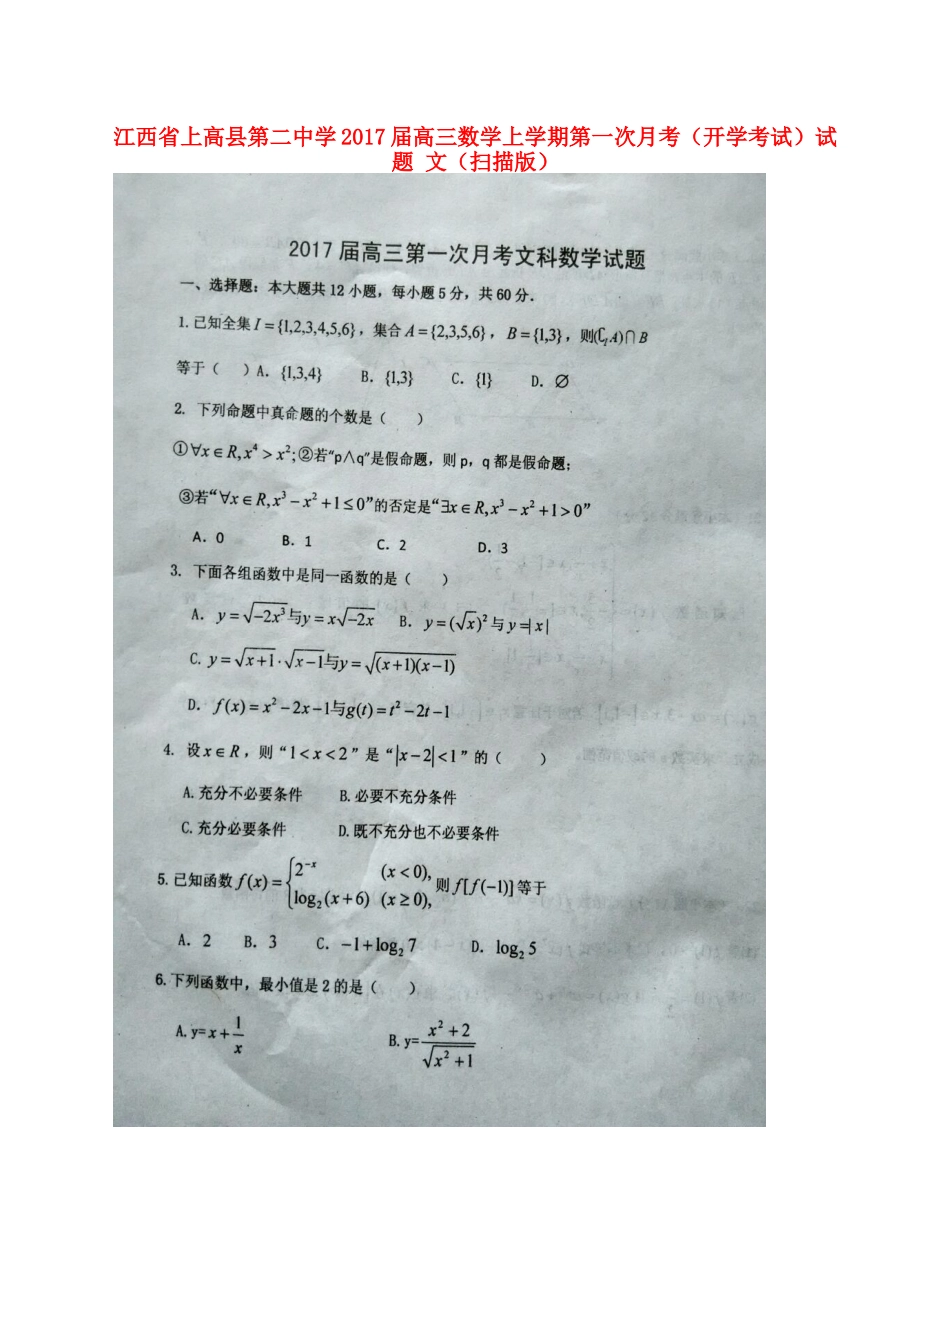 江西省上高县第二中学 2017 届高三数学上学期第一次月考（开学考试）试
题 文（扫描版）
2017 届高三第一次月考文科数学试题
一、选择题：本大题共 12 小题，每小题 5 分，共 60 分．
1.已知全集 I={1,2,3,4,5,6}，集合 A={2,3,5,6}，B={1,3}，则(∁_I A)∩B
等于（ ）A．{1,3,4} B．{1,3} C．{1} D．∅
2．下列命题中真命题的个数是（ ）
①∀x∈R,x⁴>x²;②若“p∧q”是假命题，则 p，q 都是假命题;
③若“∀x∈R,x³−x²+1≤0”的否定是“∃x∈R,x³−x²+1>0”
A．0 B．1 C．2 D．3
3．下面各组函数中是同一函数的是（ ）
A．y=√(−2x³)与y=x√(−2x) B．y=(√x)²与y=|x|
C.y=√(x+1)·√(x−1)与y=√((x+1)(x−1))
D．f(x)=x²−2x−1与g(t)=t²−2t−1
4．设x∈R，则“1<x<2”是“|x−2|<1”的（ ）
A.充分不必要条件 B.必要不充分条件
C.充分必要条件 D.既不充分也不必要条件
5.已知函数f(x)={2⁻ˣ (x<0), log₂(x+6) (x≥0), 则f[f(−1)]等于
A．2 B．3 C．−1+log₂7 D．log₂5
6.下列函数中，最小值是 2 的是（ ）
A.y=x+1/x B.y=(x²+2)/√(x²+1)